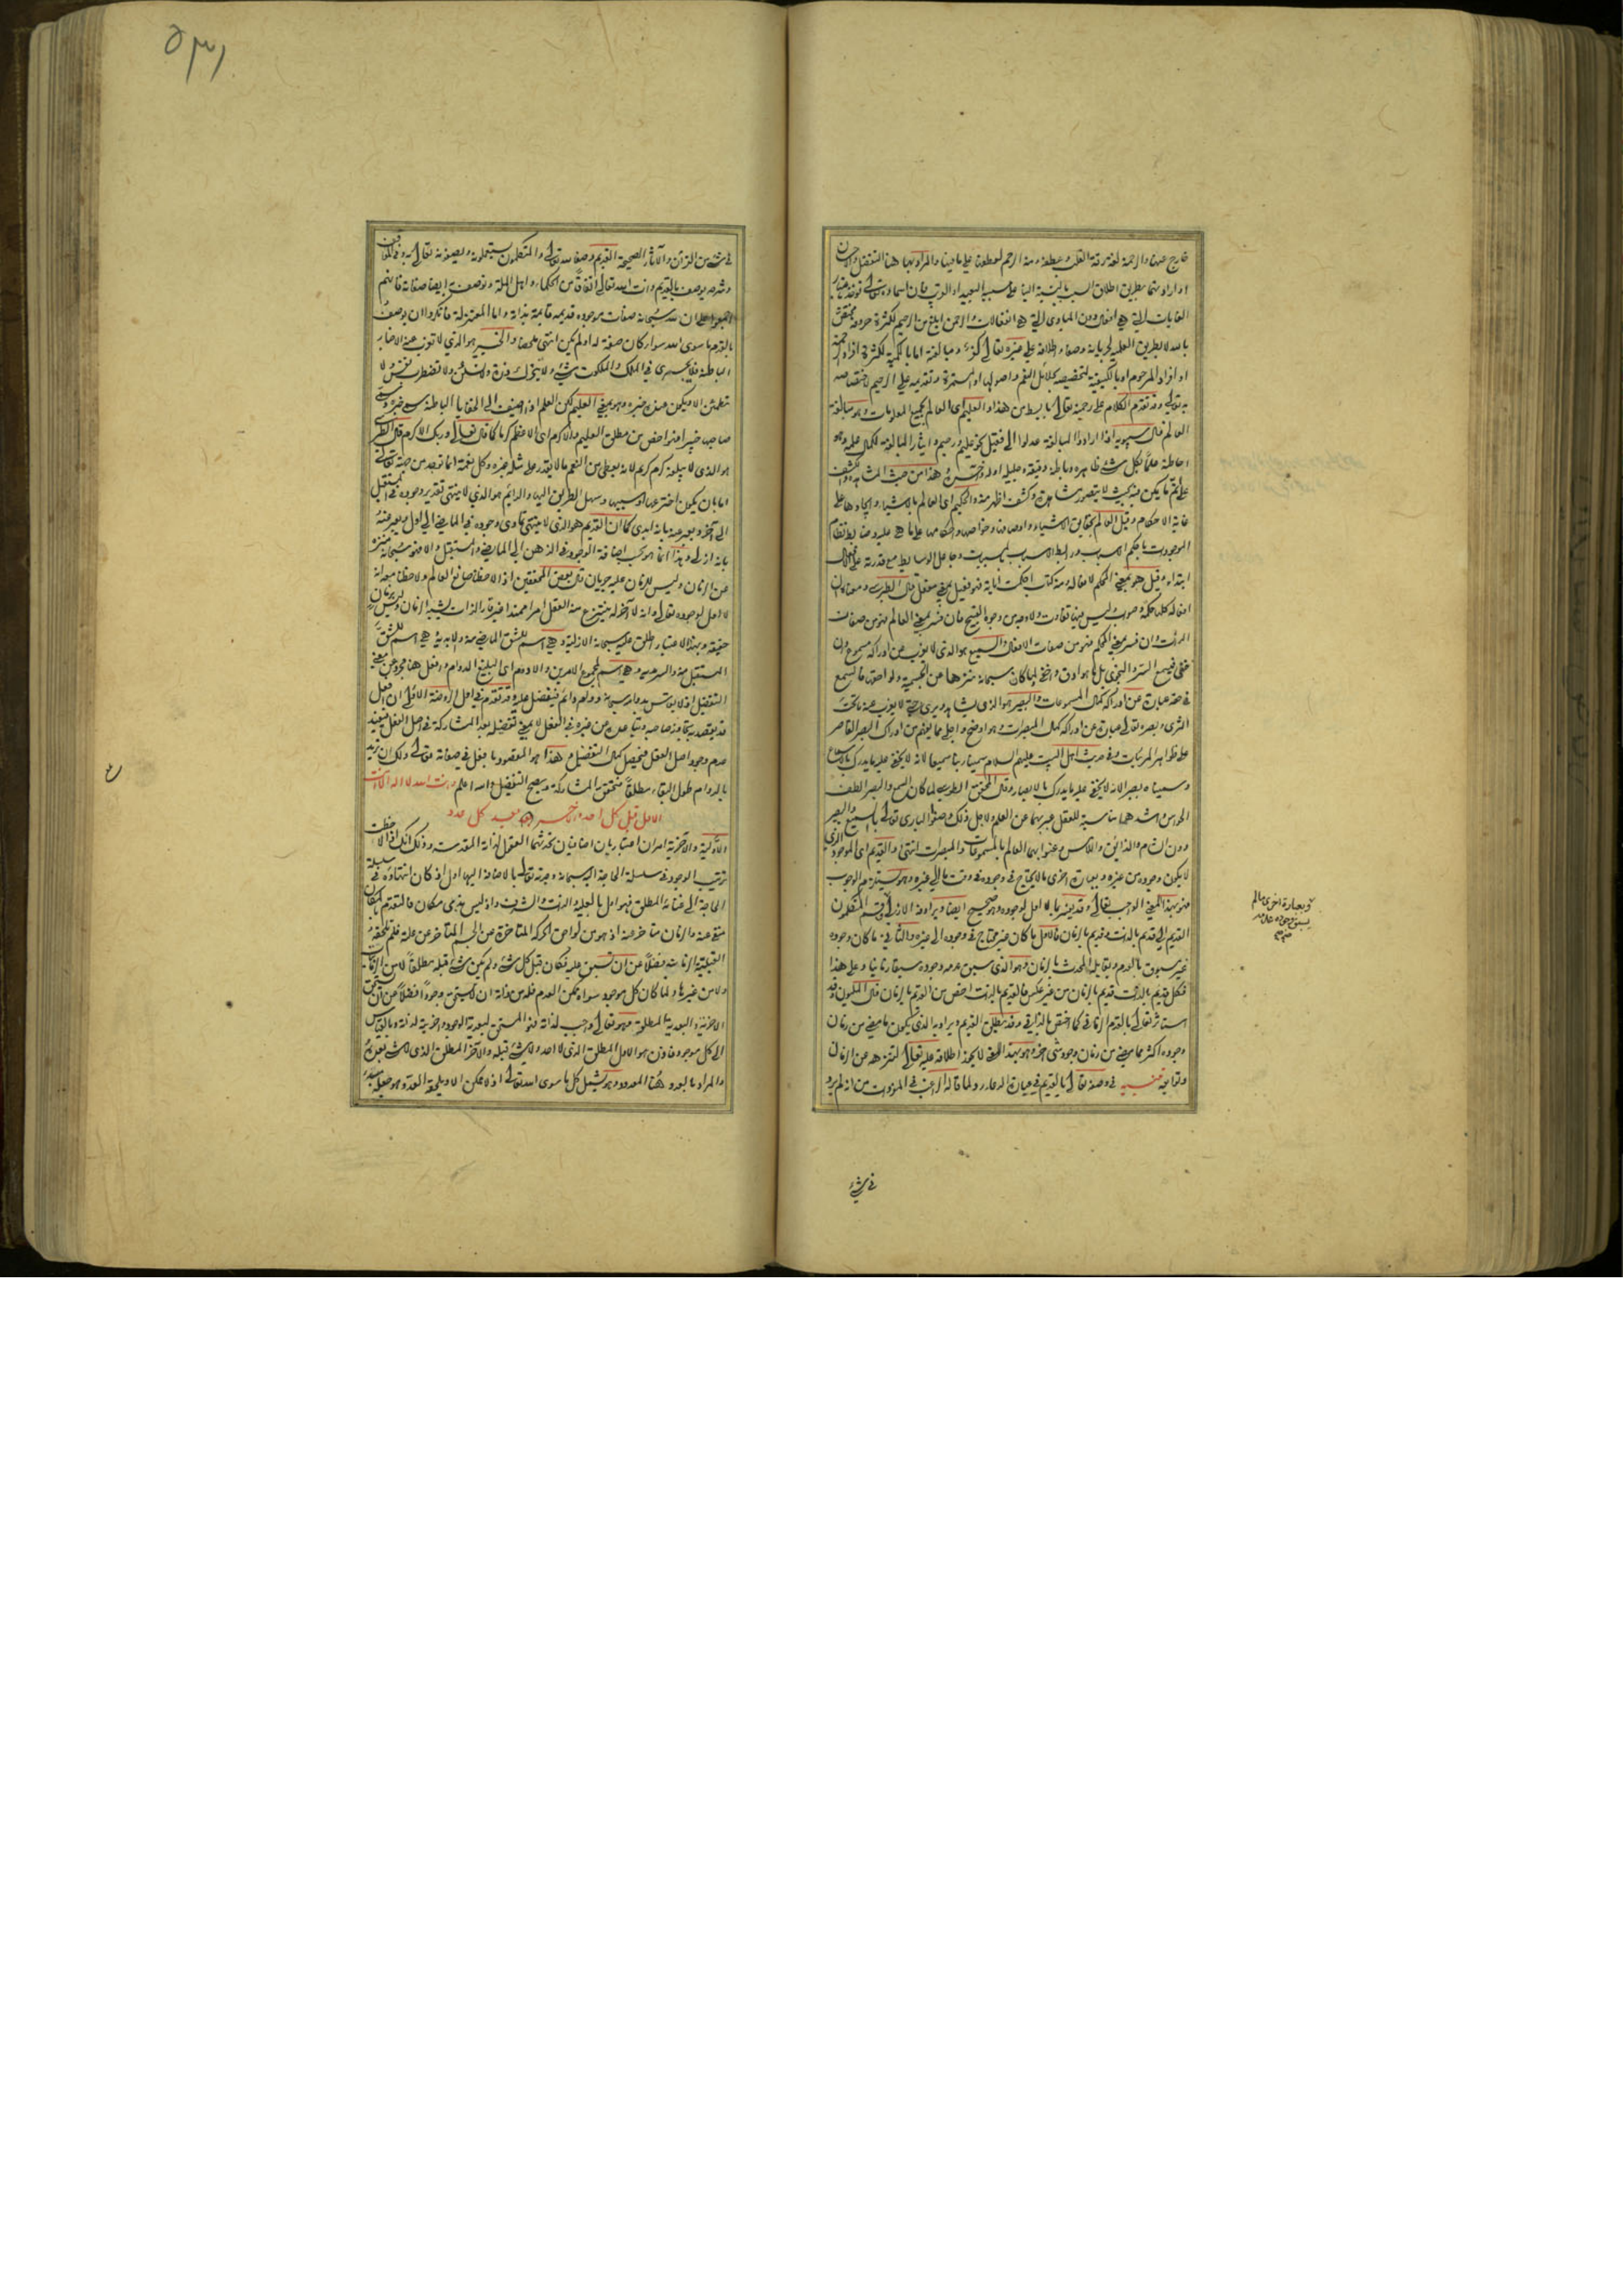 خارج عنها والرحمة لغة رقة القلب وعطفه ومنه الرحم لعطفها على ما فيها والمراد بها هنا التفضل والاحسان
او ارادتهما بطريق اطلاق السبب بالنسبة الينا على سببه البعيد او القريب فان اسماءه تعالى تؤخذ باعتبار
الغايات التي هي افعال دون المبادى التي هي انفعالات والرحمن ابلغ من الرحيم لكثرة حروفه مختص
بالله لا بطريق العلمية لجريانه وصفا واطلاقه على غيره تعالى كفر ومبالغته اما بالكمية لكثرة افراد الرحمة
او افراد المرحوم او بالكيفية لتخصيصه بجلائل النعم واصولها المستمرة وتقديمه على الرحيم لاختصاصه
به تعالى وقد تقدم الكلام على رحمته تعالى بابسط من هذا والعليم اى العالم بجميع المعلومات وهو مبالغة
العالم قال سيبويه اذا ارادوا المبالغة عدلوا الى فعيل نحو عليم ورحيم المبالغة لكمال علمه وهو
احاطته علما بكل شئ ظاهره وباطنه دقيقه وجليله اوله وآخره هذا من حيث
على اتم ما يكن فيه بحيث لا يتصور مشاهدة وكشف اظهر منه والحكيم اى العالم بالاشياء وايجادها على
غاية الاحكام وقيل العالم بحقايق الاشياء واوصافها وخواصها واحكامها على ما هي عليه وضابط نظام
الموجودات باحكم الاسباب ورابط الاسباب بالمسببات وجاعل الوسايط مع قدرته على
ابتداء وقيل هو بمعنى المحكم لافعاله ومنه كتاب احكمت آياته فهو فعيل بمعنى مفعل قال الطبرسي ومعناه ان
افعاله كلها حكمة وصواب وليس فيها تفاوت ولا وجه من وجوه القبيح فان فسر بمعنى العالم فهو من صفات
الذات وان فسر بمعنى المحكم فهو من صفات الافعال والسميع هو الذي لا يعزب عن ادراكه مسموع وان
خفي فيسمع السر والنجوى بل ما هو ادق واخفى ولما كان سبحانه منزها عن الجسمية ولواحقها فالسمع
في حقه عبارة عن ادراكه كمال المسموعات والبصير هو الذي يشاهد ويرى حتى لا يعزب عنه ما تحت
الثرى وبصره تعالى عبارة عن ادراكه كمال المبصرات وهو اوضح واجلى مما يفهم من ادراك البصر القاصر
على ظواهر المرئيات وفي حديث اهل البيت عليهم السلام سمينا ربنا سميعا لانه لا يخفى عليه ما يدرك بالاسماع
وسميناه بصيرا لانه لا يخفى عليه ما يدرك بالابصار وقال المحقق الطوسي لما كان السمع والبصر الطف
الحواس واشدهما مناسبة للعقل عبر بهما عن العلم لاجل ذلك وصفوا البارى تعالى بالسميع والبصير
دون الشام والذائق واللامس وعنوا بهما العالم بالمسموعات والمبصرات انتهى والقديم اى الموجود الذي
لا يكون وجوده من غيره وبعبارة اخرى ما لا يحتاج في وجوده في وقت ما الى غيره وهو يستلزم الوجوب
فهو بهذا المعنى الواجب تعالى وقد يفسر بما لا اول لوجوده وهو صحيح ايضا ويرادفه الازلي وقسم المتكلمون
القديم الى قديم بالذات وقديم بالزمان فالاول ما كان غير محتاج في وجوده الى غيره والثاني ما كان وجوده
غير مسبوق بالعدم ويقابل المحدث بالزمان وهو الذي سبق عدمه وجوده سبقا زمانيا وعلى هذا
فكل قديم بالذات قديم بالزمان من غير عكس فالقديم بالذات اخص من القديم بالزمان قال المليون وقد
استاثر تعالى بالقدم الزماني كما اختص بالذاتي وقد يطلق القديم ويراد به الذي يكون ما مضى من زمان
وجوده اكثر مما مضى من زمان وجود شئ آخر وهو بهذا المعنى لا يجوز اطلاقه عليه تعالى لتنزهه عن الزمان
وتوابعه تنبيه في وصفه تعالى بالقديم في عبارة الدعاء رد لما قاله الراغب في المفردات من انه لم يرد
في شئ
وبعبارة اخرى ما لم
يسبق وجوده عدمه
٥٣١
في شئ من القرآن والآثار الصحيحة القديم وصفا لله تعالى والمتكلمون يستعملونه ويصفونه تعالى به وفي المواقف
وشرحه يوصف بالقديم ذات الله تعالى اتفاقا من الحكماء واهل الملة وتوصف به ايضا صفاته فانهم
اجمعوا على ان لله سبحانه صفات موجودة قديمة قائمة بذاته واما المعتزلة فانكروا ان يوصف
بالقدم ما سوى الله سواء كان صفة له او لم يكن انتهى ملخصا والخبير هو الذي لا تعزب عنه الاخبار
الباطنة فلا يجرى في الملك والملكوت شئ ولا يتحرك ذرة ولا يسكن ولا تضطرب نفس ولا
تطمئن الا ويكون عنده خبره وهو بمعنى العليم لكن العلم اذا اضيف الى الخفايا الباطنة سمي خبرة وسمي
صاحبه خبيرا فهو اخص من مطلق العليم والاكرم اى الاعظم كرما كما قال تعالى وربك الاكرم قال الطبرسي
هو الذي لا يبلغه كرم كريم لانه يعطى من النعم ما لا يقدر على مثله غيره وكل نعمة انما توجد من جهته تعالى
اما بان يكون اخترعها او سببها وسهل الطريق اليها والدائم هو الذي لا ينتهى تقدير وجوده في المستقبل
الى آخر ويعبر عنه بانه ابدى كما ان القديم هو الذي لا ينتهى تمادى وجوده في الماضي الى اول ويعبر عنه
بانه ازلى وهذا انما هو بحسب اضافة الوجود في الذهن الى الماضي والمستقبل والا فهو سبحانه منزه
عن الزمان وليس للزمان عليه جريان قال بعض المحققين اذا لاحظنا صانع العالم ولاحظنا معه انه
لا اول لوجوده تعالى وانه لا آخر له ينتزع منه العقل امرا ممتدا غير قار الذات يشبه الزمان وليس بزمان
حقيقة وبهذا الاعتبار يطلق عليه سبحانه الازلية وهي اسم للشق الماضي منه والابدية هي اسم للشق
المستقبل منه والسرمدية وهي اسم لمجموع الامرين والادوم اى البليغ الدوام وافعل هنا مجرد عن معنى
التفضيل اذ لا يقاس بدوامه سبحانه دوام دائم فيفضل عليه وقد تقدم في اول الروضة الاولى ان افعل
قد يقصد به تجاوز صاحبه وتباعده من غيره في الفعل لا بمعنى تفضيله بعد المشاركة في اصل الفعل فيفيد
عدم وجود اصل الفعل فيحصل كمال التفضيل وهذا هو المقصود بافعل في صفاته تعالى ولك ان تريد
بالدوام طول البقاء مطلقا فتحقق المشاركة ويصح التفضيل والله اعلم وانت الله لا اله الا انت
الاول قبل كل احد والاخر بعد كل عدد
الاولية والآخرية امران اعتباريان اضافيان يحدثهما العقول لذاته المقدسة وذلك انك اذا لاحظت
ترتيب الوجود في سلسلة الحاجة اليه سبحانه وجدته تعالى بالاضافة اليها اول اذ كان انتهاؤه في سلسلة
الحاجة الى غنائه المطلق فهو اول بالعلية والذات والشرف واذ ليس بذى مكان فالتقدم بالمكان
منفى عنه والزمان متاخر عنه اذ هو من لواحق الحركة المتاخرة عن الجسم المتاخر عن علته فلم تلحقه
القبلية الزمانية فضلا عن ان تسبق عليه فكان قبل كل شئ ولم يكن شئ قبله مطلقا لا من الزمانيات
ولا من غيرها ولما كان كل موجود سواه ممكن العدم فله من ذاته ان لا يستحق وجودا فضلا عن ان يستحق
الآخرية والبعدية المطلقة وهو تعالى واجب لذاته فهو المستحق لبعدية الوجود وآخريته لذاته وبالقياس
الى كل موجود فاذن هو الاول المطلق الذي لا احد ولا شئ قبله والآخر المطلق الذي لا شئ بعده
والمراد بالعدد هنا المعدود وهو يشمل كل ما سوى الله تعالى اذ لا ممكن الا ويلحقه العدد وهو جعله مبدء